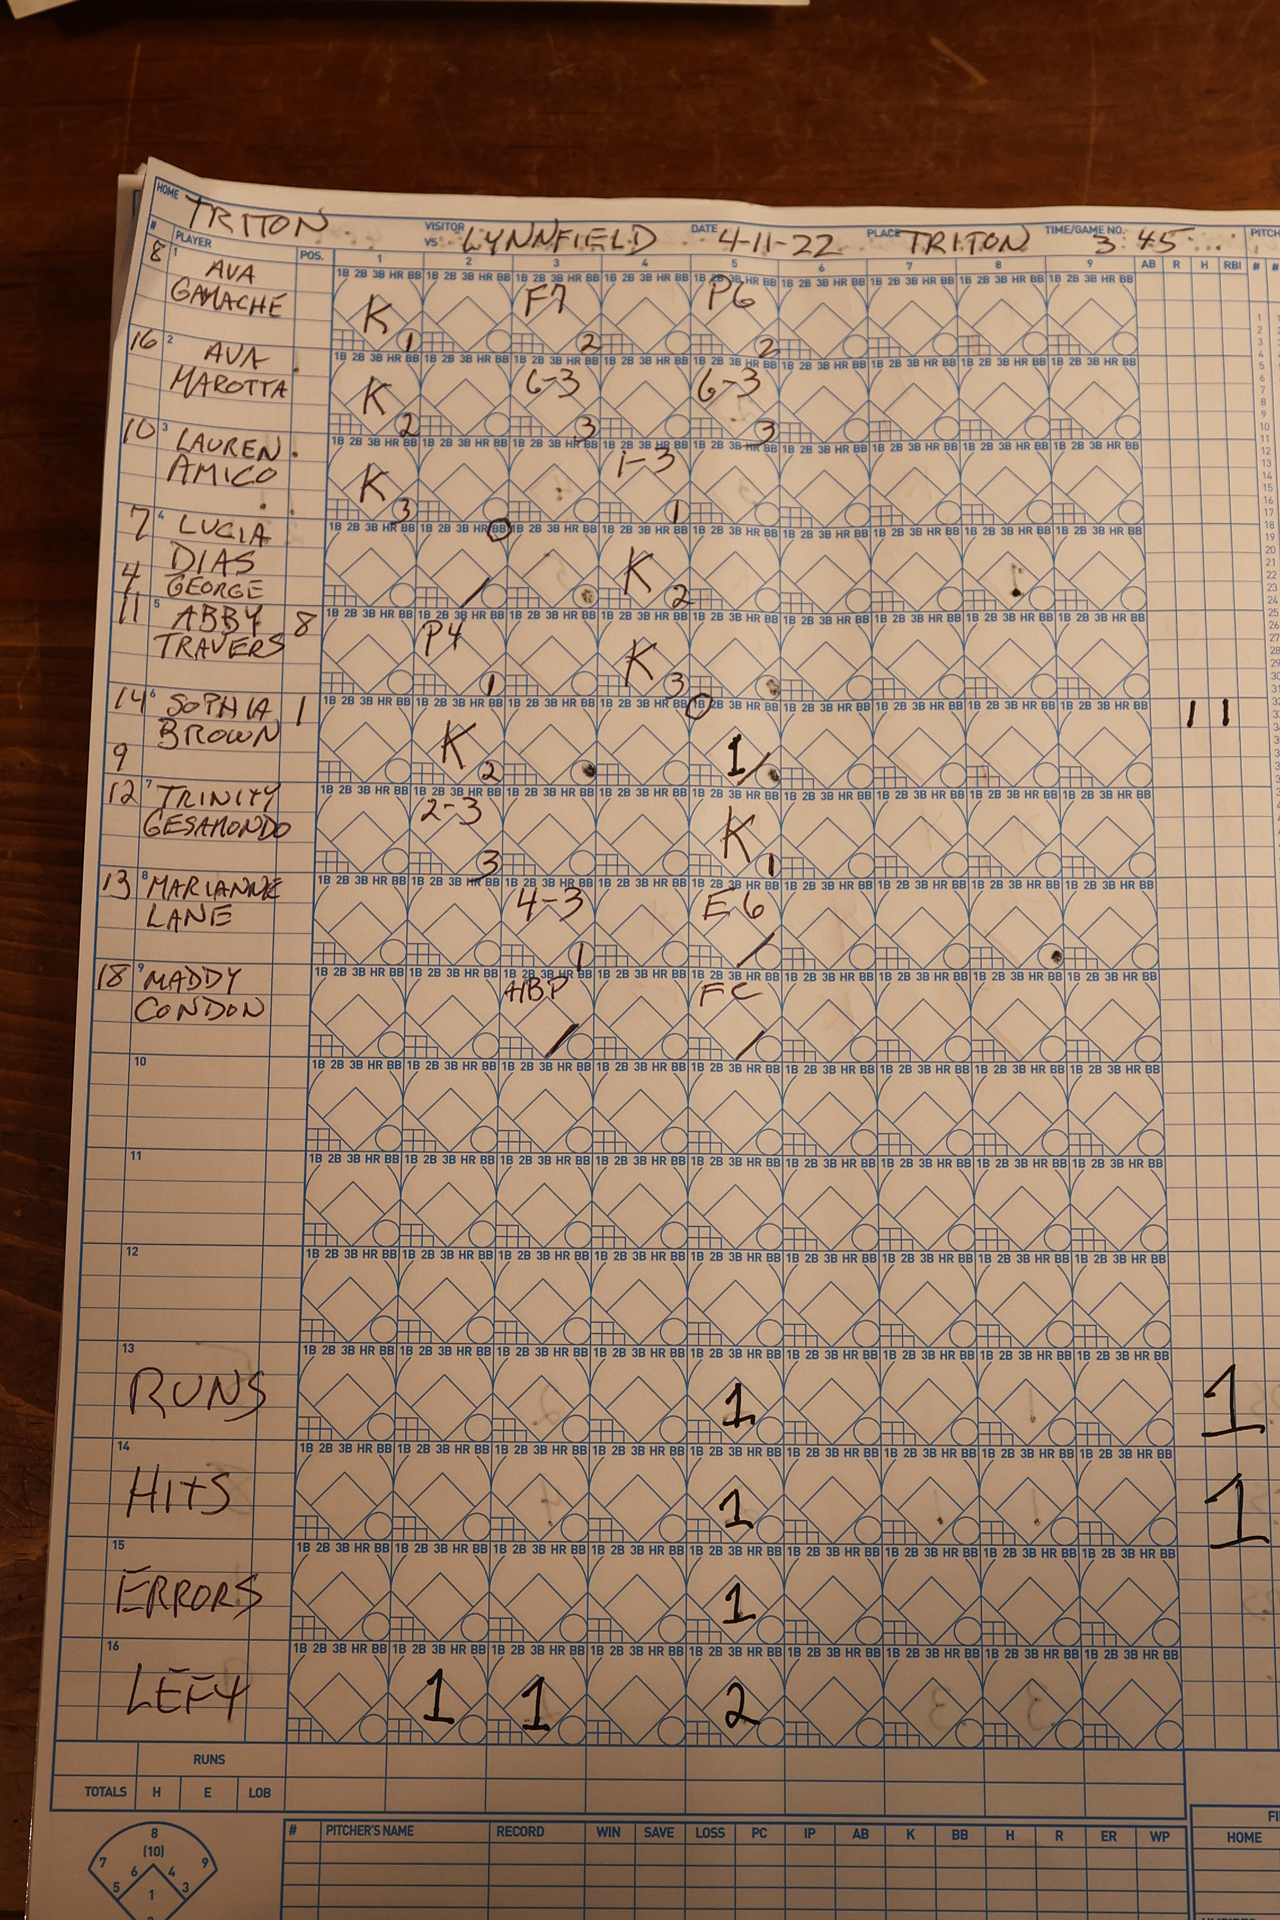 HOME TRITON VISITOR VS LYNNFIELD DATE 4-11-22 PLACE TRITON TIME/GAME NO. 3:45 PITCH
# PLAYER POS. 1 2 3 4 5 6 7 8 9 AB R H RBI # #
8 1 AVA
GAMACHE
K 1 F7 2 P6 2
16 2 AVA
MAROTTA
K 2 6-3 3 6-3 3
10 3 LAUREN
AMICO
K 3 1-3 1
7 4 LUCIA
DIAS
4 GEORGE
K 2
11 5 ABBY 8
TRAVERS
P4 1 K 3
14 6 SOPHIA 1
BROWN
9
K 2 1 1 1
12 7 TRINITY
GESAMONDO
2-3 3 K 1
13 8 MARIANNE
LANE
4-3 1 E6
18 9 MADDY
CONDON
HBP FC
10
11
12
13
RUNS 1 1
14
HITS 1 1
15
ERRORS 1
16
LEFT 1 1 2
RUNS
TOTALS H E LOB
# PITCHER'S NAME RECORD WIN SAVE LOSS PC IP AB K BB H R ER WP
HOME
8
(10)
7 6 4 9
5 1 3